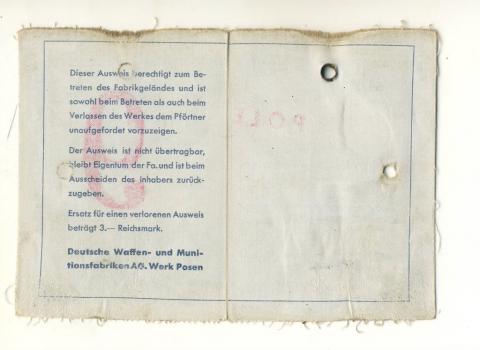 Dieser Ausweis berechtigt zum Be-
treten des Fabrikgeländes und ist
sowohl beim Betreten als auch beim
Verlassen des Werkes dem Pförtner
unaufgefordet vorzuzeigen.
Der Ausweis ist nicht übertragbar,
bleibt Eigentum der Fa. und ist beim
Ausscheiden des Inhabers zurück-
zugeben.
Ersatz für einen verlorenen Ausweis
beträgt 3.— Reichsmark.
Deutsche Waffen- und Muni-
tionsfabriken AG. Werk Posen